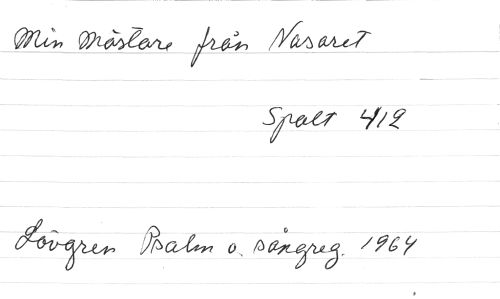 Min Mästare från Nasaret
Spalt 412
Lövgren Psalm o. sångreg. 1964